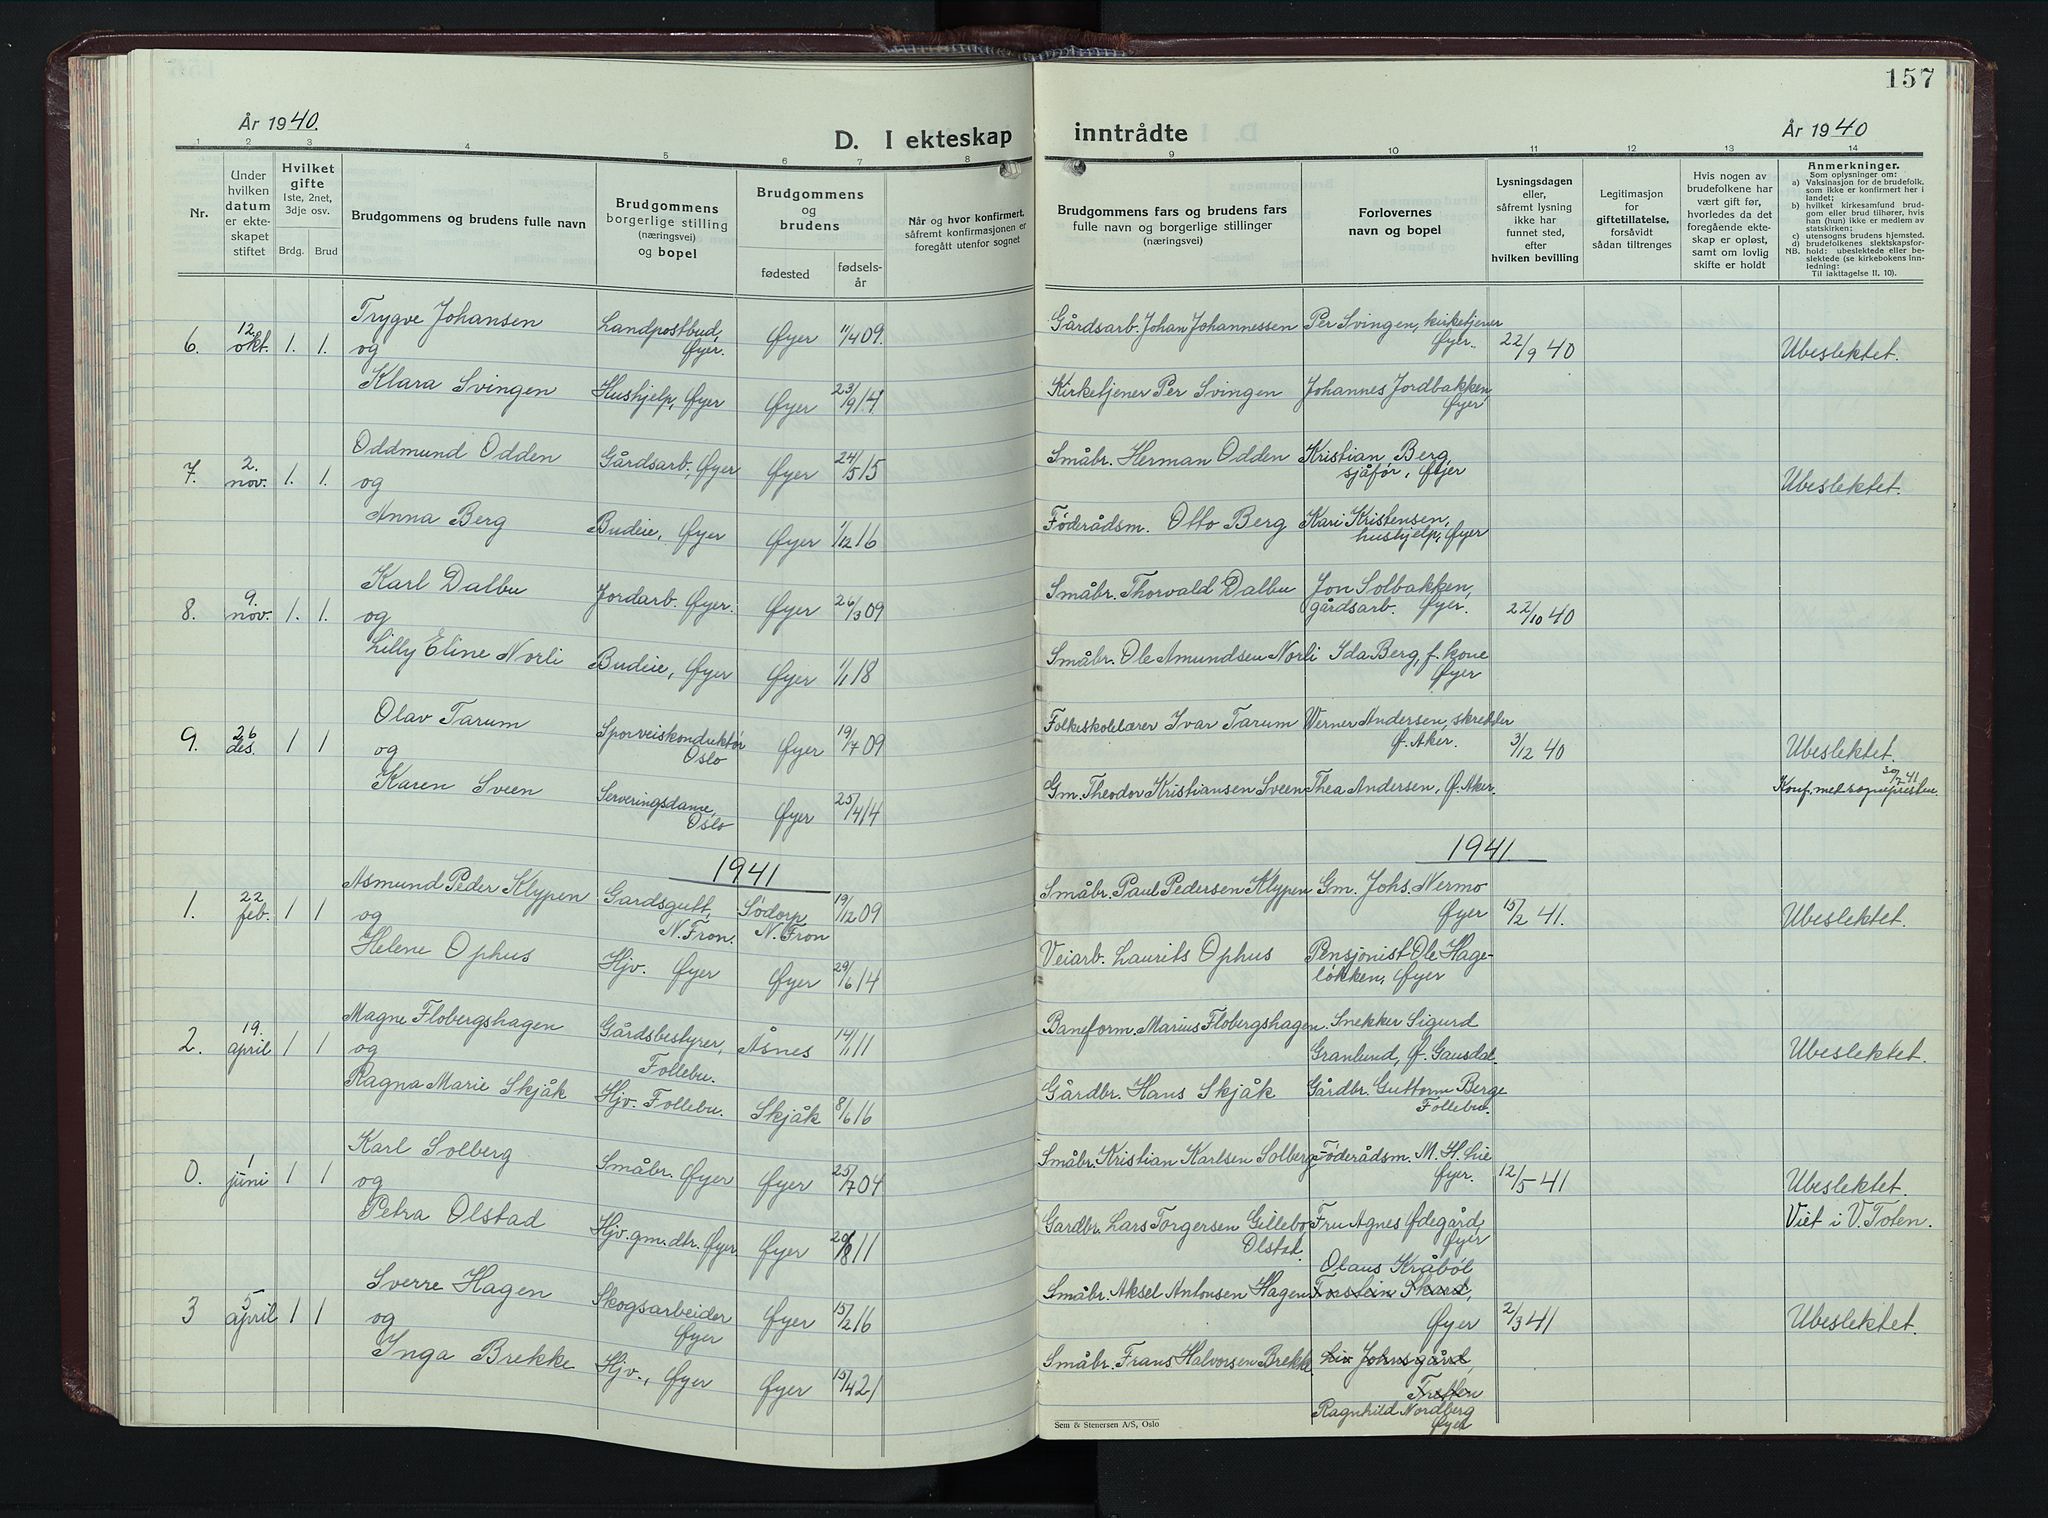 157
År 1940.
D. I ekteskap inntrådte
År 1940
1 2 3 4 5 6 7 8 9 10 11 12 13 14
Nr.
Under hvilken datum er ekteskapet stiftet
Hvilket gifte
1ste, 2net, 3dje osv.
Brdg. Brud
Brudgommens og brudens fulle navn
Brudgommens borgerlige stilling (næringsvei) og bopel
Brudgommens og brudens
fødested
fødselsår
Når og hvor konfirmert, såfremt konfirmasjonen er foregått utenfor sognet
Brudgommens fars og brudens fars fulle navn og borgerlige stillinger (næringsvei)
Forlovernes navn og bopel
Lysningsdagen eller, såfremt lysning ikke har funnet sted, efter hvilken bevilling
Legitimasjon for giftetillatelse, forsåvidt sådan tiltrenges
Hvis nogen av brudefolkene har vært gift før, hvorledes da det foregående ekteskap er opløst, samt om lovlig skifte er holdt
Anmerkninger.
Som oplysning om:
a) Vaksinasjon for de brudefolk, som ikke er konfirmert her i landet;
b) hvilket kirkesamfund brudgom eller brud tilhører, hvis han (hun) ikke er medlem av statskirken;
c) utensogns brudens hjemsted.
d) brudefolkenes slektskapsforhold: ubeslektede eller beslektede (se kirkebokens Innledning:
NB.
Til iakttagelse II, 10).
6. 12 okt. 1. 1. Trygve Johansen Landpostbud, Øyer. Øyer 11/4 09. Gårdsarb. Johan Johannessen Per Svingen, kirketjener Øyer. 22/9 40 Ubeslektet.
og
Klara Svingen Hushjelp, Øyer Øyer 23/9 14 Kirketjener Per Svingen Johannes Jordbakken, Øyer
7. 2. nov. 1. 1. Oddmund Odden Gårdsarb., Øyer Øyer 24/5 15 Småbr. Herman Odden Kristian Berg, sjåfør, Øyer Ubeslektet.
og
Anna Berg Budeie, Øyer Øyer 1/12 16 Föderådsm. Otto Berg Kari Kristensen, hushjelp, Øyer
8. 9. nov. 1. 1. Karl Dalbu Jordarb. Øyer. Øyer 26/3 09 Småbr. Thorvald Dalbu Jon Solbakken, gårdsarb. Øyer. 22/10 40
og
Lilly Eline Norli Budeie, Øyer Øyer 1/1 18 Småbr. Ole Amundsen Norli Ida Berg, f. kone Øyer
9. 26 des. 1 1 Olav Tarum Sporveiskonduktør Oslo Øyer 19/7 09 Folkeskolelærer Ivar Tarum Werner Andersen, skredder Ø. Aker. 3/12 40 Ubeslektet.
og
Karen Sveen Serveringsdame, Oslo Øyer 25/4 14 Gm. Theodor Kristiansen Sveen Thea Andersen, Ø. Aker. Konf. med sognepresten. 30/7 41
1941
1941
1. 22 feb. 1 1 Asmund Peder Klypen Gardsgutt, N. Fron. Södorp N. Fron 19/12 09 Småbr. Paul Pedersen Klypen Gm. Johs. Nermo Øyer 15/2 41. Ubeslektet.
og
Helene Ophus Hjv. Øyer Øyer 29/6 14 Veiarb. Laurits Ophus Pensjonist Ole Hageløkken, Øyer
2. 19. april 1 1 Magne Flobergshagen Gårdsbestyrer, Follebu. Åsnes 14/1 11 Baneform. Marius Flobergshagen. Snekker Sigurd Granlund, Ø. Gausdal. Ubeslektet.
og
Ragna Marie Skjåk Hjv. Follebu. Skjåk 8/6 16 Gårdbr. Hans Skjåk Gårdbr. Guttorm Berge Follebu.
0. 1 juni 1 1 Karl Solberg Småbr. Øyer Øyer 25/7 04 Småbr. Kristian Karlsen Solberg Föderådsm. M. H. Lie Øyer. 12/5 41 Ubeslektet.
og
Petra Olstad Hjv. gm. dtr. Øyer Øyer 20/8 11 Gardbr. Lars Torgersen Gillebo, Olstad Fru Agnes Ødegård, Øyer Viet i V. Toten.
3 5 april 1 1 Sverre Hagen Skogsarbeider Øyer Øyer 15/2 16 Småbr. Aksel Antonsen Hagen Olaus Kråböl Torstein Skard, Øyer 2/3 41 Ubeslektet.
og
Inga Brekke Hjv., Øyer Øyer 15/4 21 Småbr. Frans Halvorsen Brekke. Liv Johnsgård, Tretten Ragnhild Nordberg Øyer
Sem & Stenersen A/S, Oslo